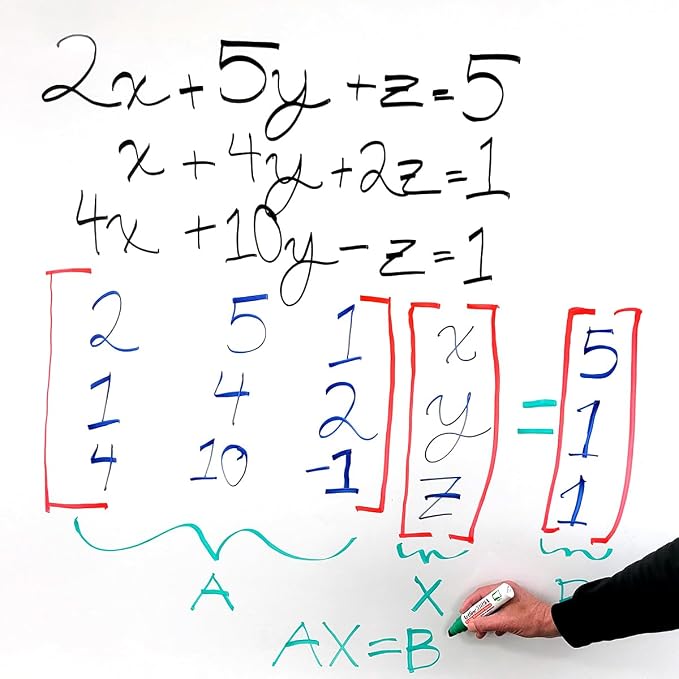 2x+5y+z=5
x+4y+2z=1
4x+10y-z=1
2 5 1 x 5
1 4 2 y = 1
4 10 -1 z 1
A X
AX=B